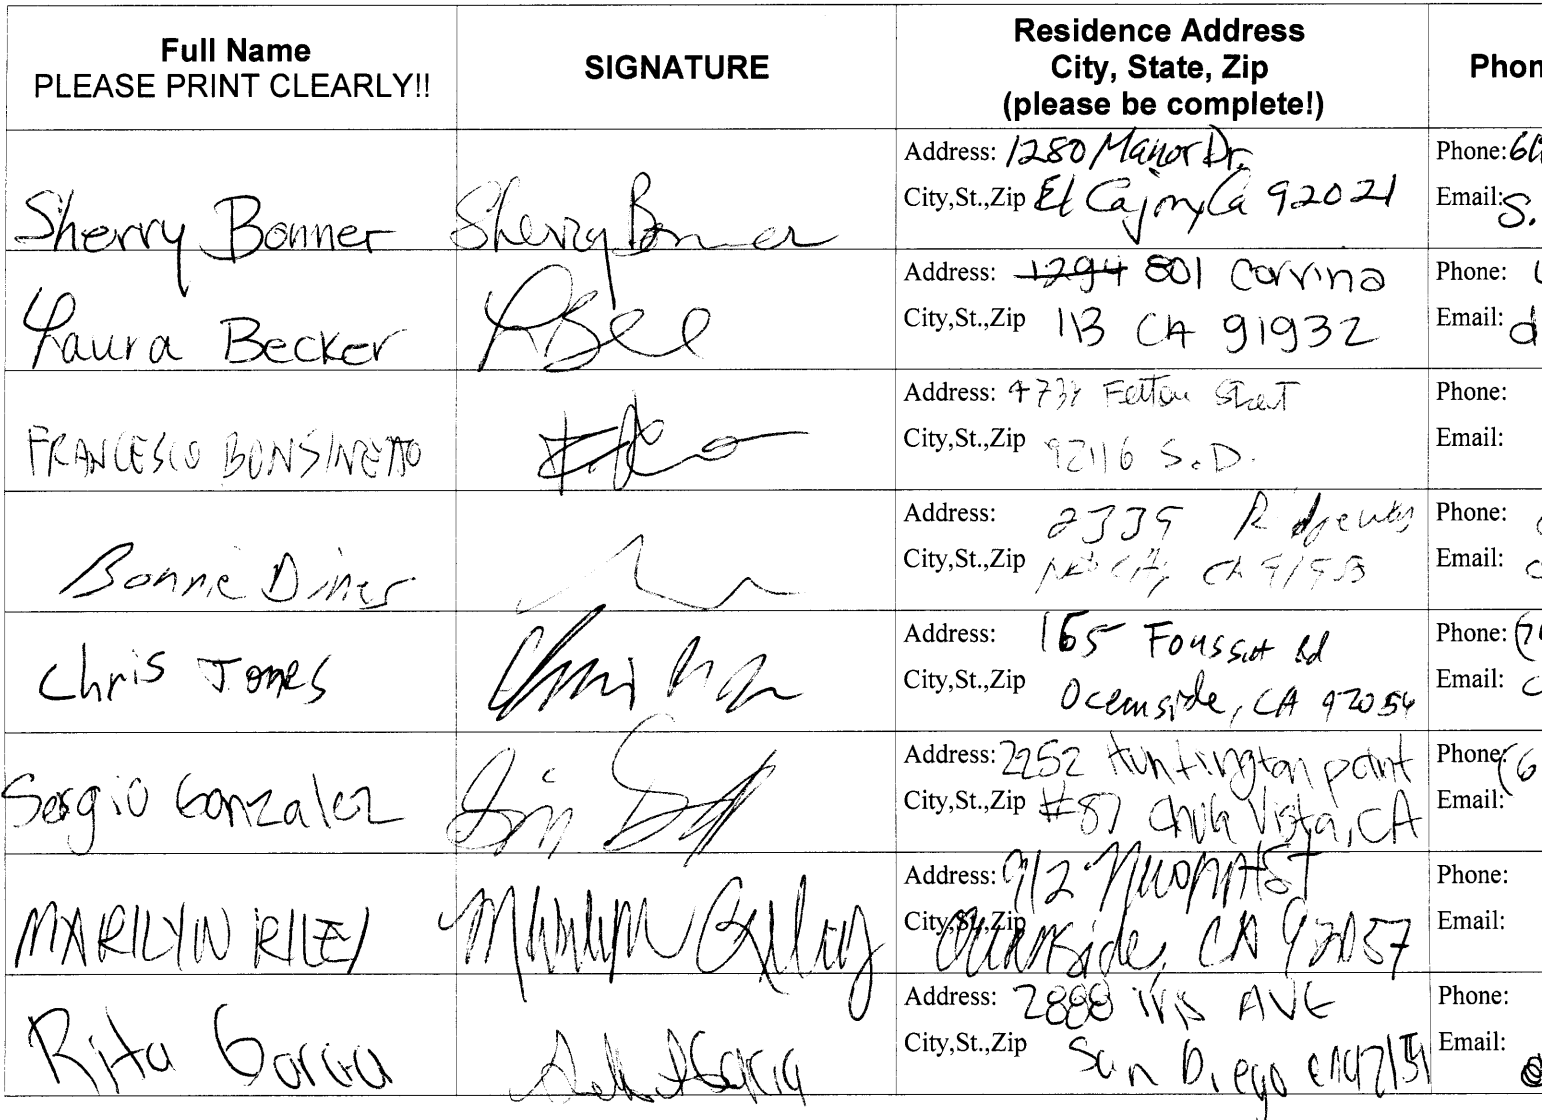 Full Name
PLEASE PRINT CLEARLY!!
SIGNATURE
Residence Address
City, State, Zip
(please be complete!)
Phon
Sherry Bonner
Sherry Bonner
Address: 1280 Manor Dr.
City,St.,Zip El Cajon, Ca 92021
Phone:
Email: S.
Laura Becker
Address: 1294 801 Corvina
City,St.,Zip IB CA 91932
Phone:
Email: d
FRANCESCO BONSINETTO
Address: Felton Street
City,St.,Zip 92116 S.D.
Phone:
Email:
Bonnie Dines
Address: 2339
City,St.,Zip Nat City, CA
Phone:
Email:
Chris Jones
Address: 165 Foussat Rd
City,St.,Zip Oceanside, CA 92054
Phone:
Email:
Sergio Gonzalez
Address: 2252 Huntington point
City,St.,Zip #87 Chula Vista, CA
Phone: (6
Email:
MARILYN RILEY
Marilyn Riley
Address: 912
City,St.,Zip Oceanside, CA 92057
Phone:
Email:
Rita Garcia
Address: 2888 iris AVE
City,St.,Zip San Diego
Phone:
Email: